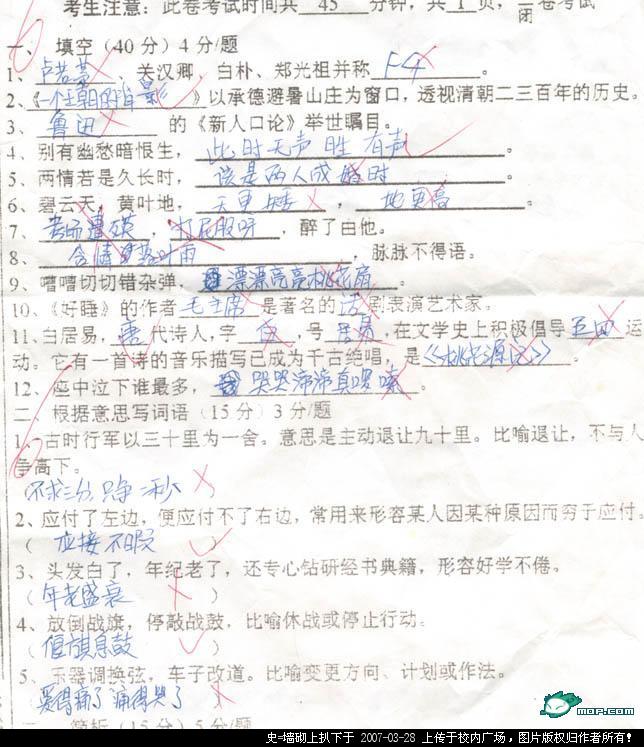 考生注意：此卷考试时间共 45 分钟，共 1 页，闭卷考试
一、填空（40分）4分/题
1、卢若 、关汉卿、白朴、郑光祖并称 F4 。
2、《一个王朝的背影》以承德避暑山庄为窗口，透视清朝二三百年的历史。
3、 鲁迅 的《新人口论》举世瞩目。
4、别有幽愁暗恨生， 此时无声胜有声 。
5、两情若是久长时， 该是两人成婚时 。
6、碧云天，黄叶地， 天更矮 ， 地更高 。
7、 考场遭殃 ， 打屁股呀 ，醉了由他。
8、 含情 叶雨 ，脉脉不得语。
9、嘈嘈切切错杂弹， 漂漂亮亮桃花扇 。
10、《好睡》的作者 毛主席 是著名的 话 剧表演艺术家。
11、白居易， 唐 代诗人，字 白 ，号 居易 ，在文学史上积极倡导 五四 运
动。它有一首诗的音乐描写已成为千古绝唱，是《桃花源记》。
12、座中泣下谁最多， 哭哭啼啼真啰嗦 。
二 根据意思写词语（15分）3分/题
1、古时行军以三十里为一舍。意思是主动退让九十里。比喻退让，不与人
争高下。
（不求三分，只争二秒 ）
2、应付了左边，便应付不了右边，常用来形容某人因某种原因而穷于应付。
（ 应接不暇 ）
3、头发白了，年纪老了，还专心钻研经书典籍，形容好学不倦。
（ 年老盛衰 ）
4、放倒战旗，停敲战鼓，比喻休战或停止行动。
（ 偃旗息鼓 ）
5、乐器调换弦，车子改道。比喻变更方向、计划或作法。
哭得痛了 痛得哭了 ）
三 简析（15分）5分/题
MOP.COM
史=墙砌上扒下于 2007-03-28 上传于校内广场，图片版权归作者所有！